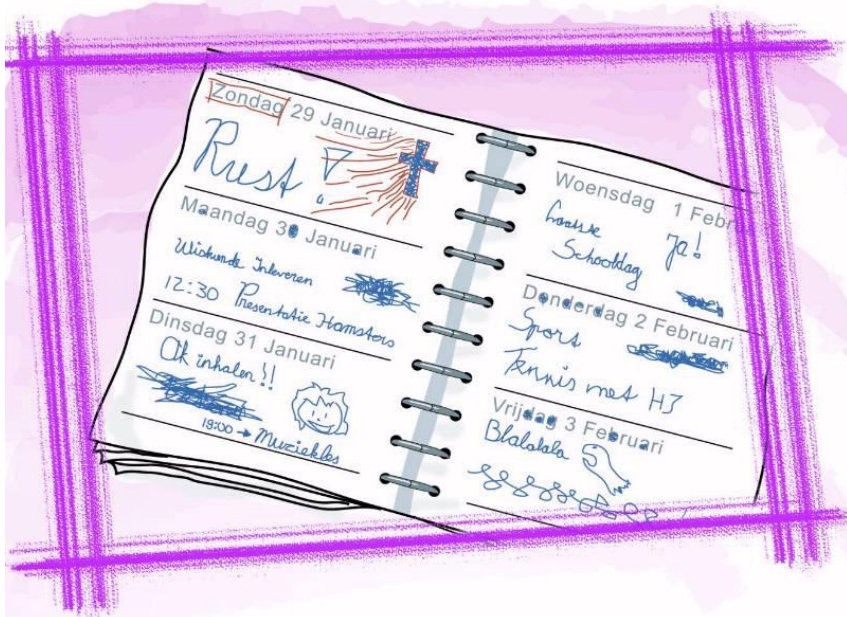 Zondag 29 Januari
Rust!
Maandag 30 Januari
Wiskunde Inleveren
12:30 Presentatie Hamsters
Dinsdag 31 Januari
Ak inhalen!!
19:00 → Muziekles
Woensdag 1 Febr
Laatste Ja!
Schooldag
Donderdag 2 Februari
Spors
Tennis met H3
Vrijdag 3 Februari
Blalalala